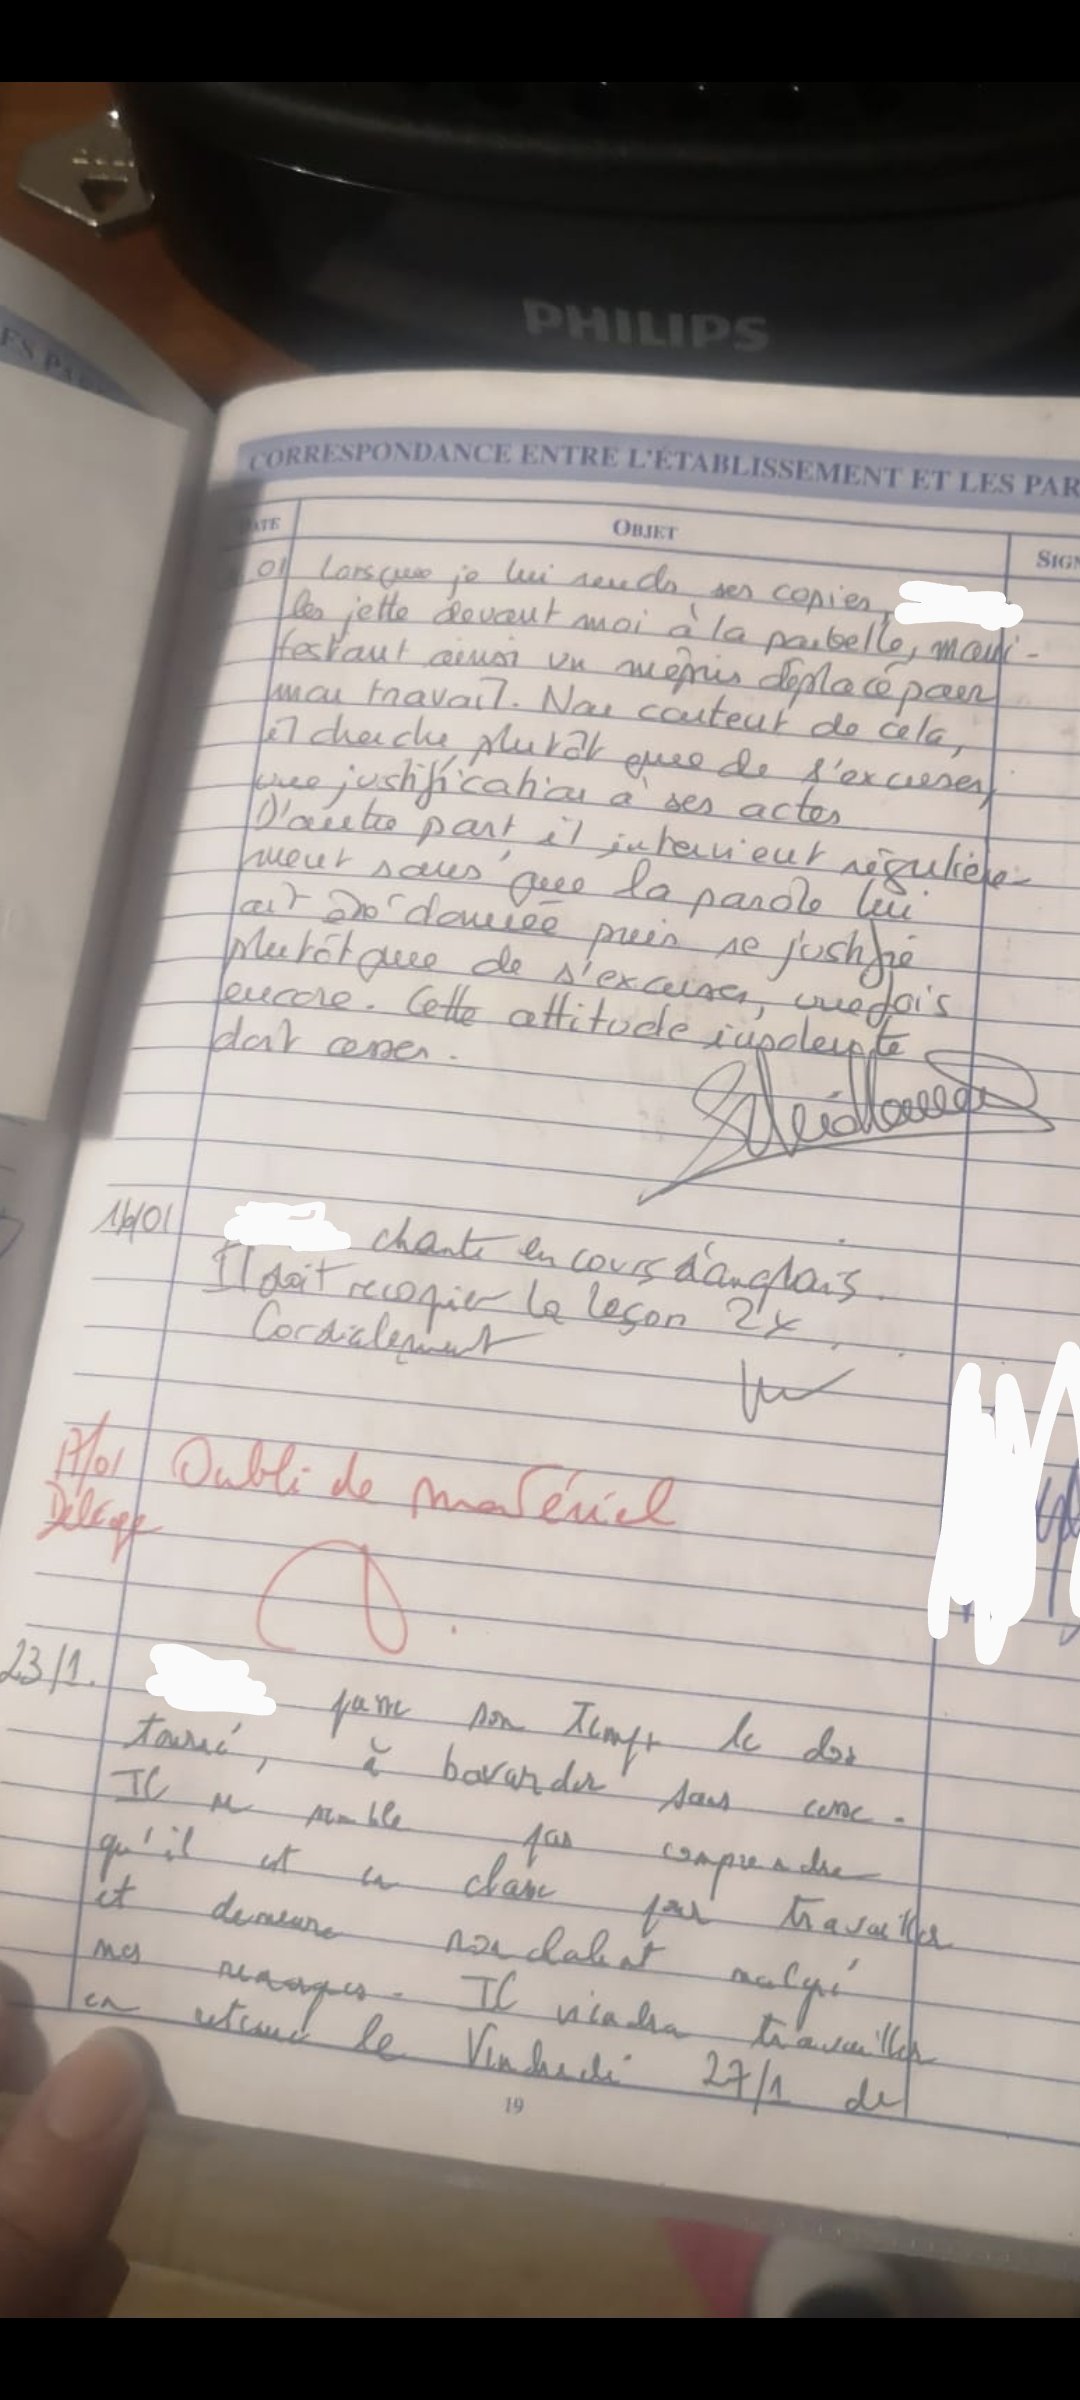 PHILIPS
ES PA
CORRESPONDANCE ENTRE L'ÉTABLISSEMENT ET LES PAR
DATE OBJET SIGN
01 Lorsque je lui rends ses copies,
les jette devant moi à la poubelle, mani-
festant ainsi un mépris déplacé pour
mon travail. Non content de cela,
il cherche, plutôt que de s'excuser,
une justification à ses actes
D'autre part il intervient régulière-
ment sans que la parole lui
ait donnée puis se justifie
plutôt que de s'excuser, une fois
encore. Cette attitude insolente
doit cesser.
16/01 chante en cours d'anglais.
Il doit recopier la leçon 2x
Cordialement
17/01 Oubli de matériel
23/1. passe son temps le dos
tourné, à bavarder sans cesse.
Il ne semble pas comprendre
qu'il est en classe pour travailler
et demeure nonchalant malgré
mes remarques. Il viendra travailler
en retenue le Vendredi 27/1 de
19